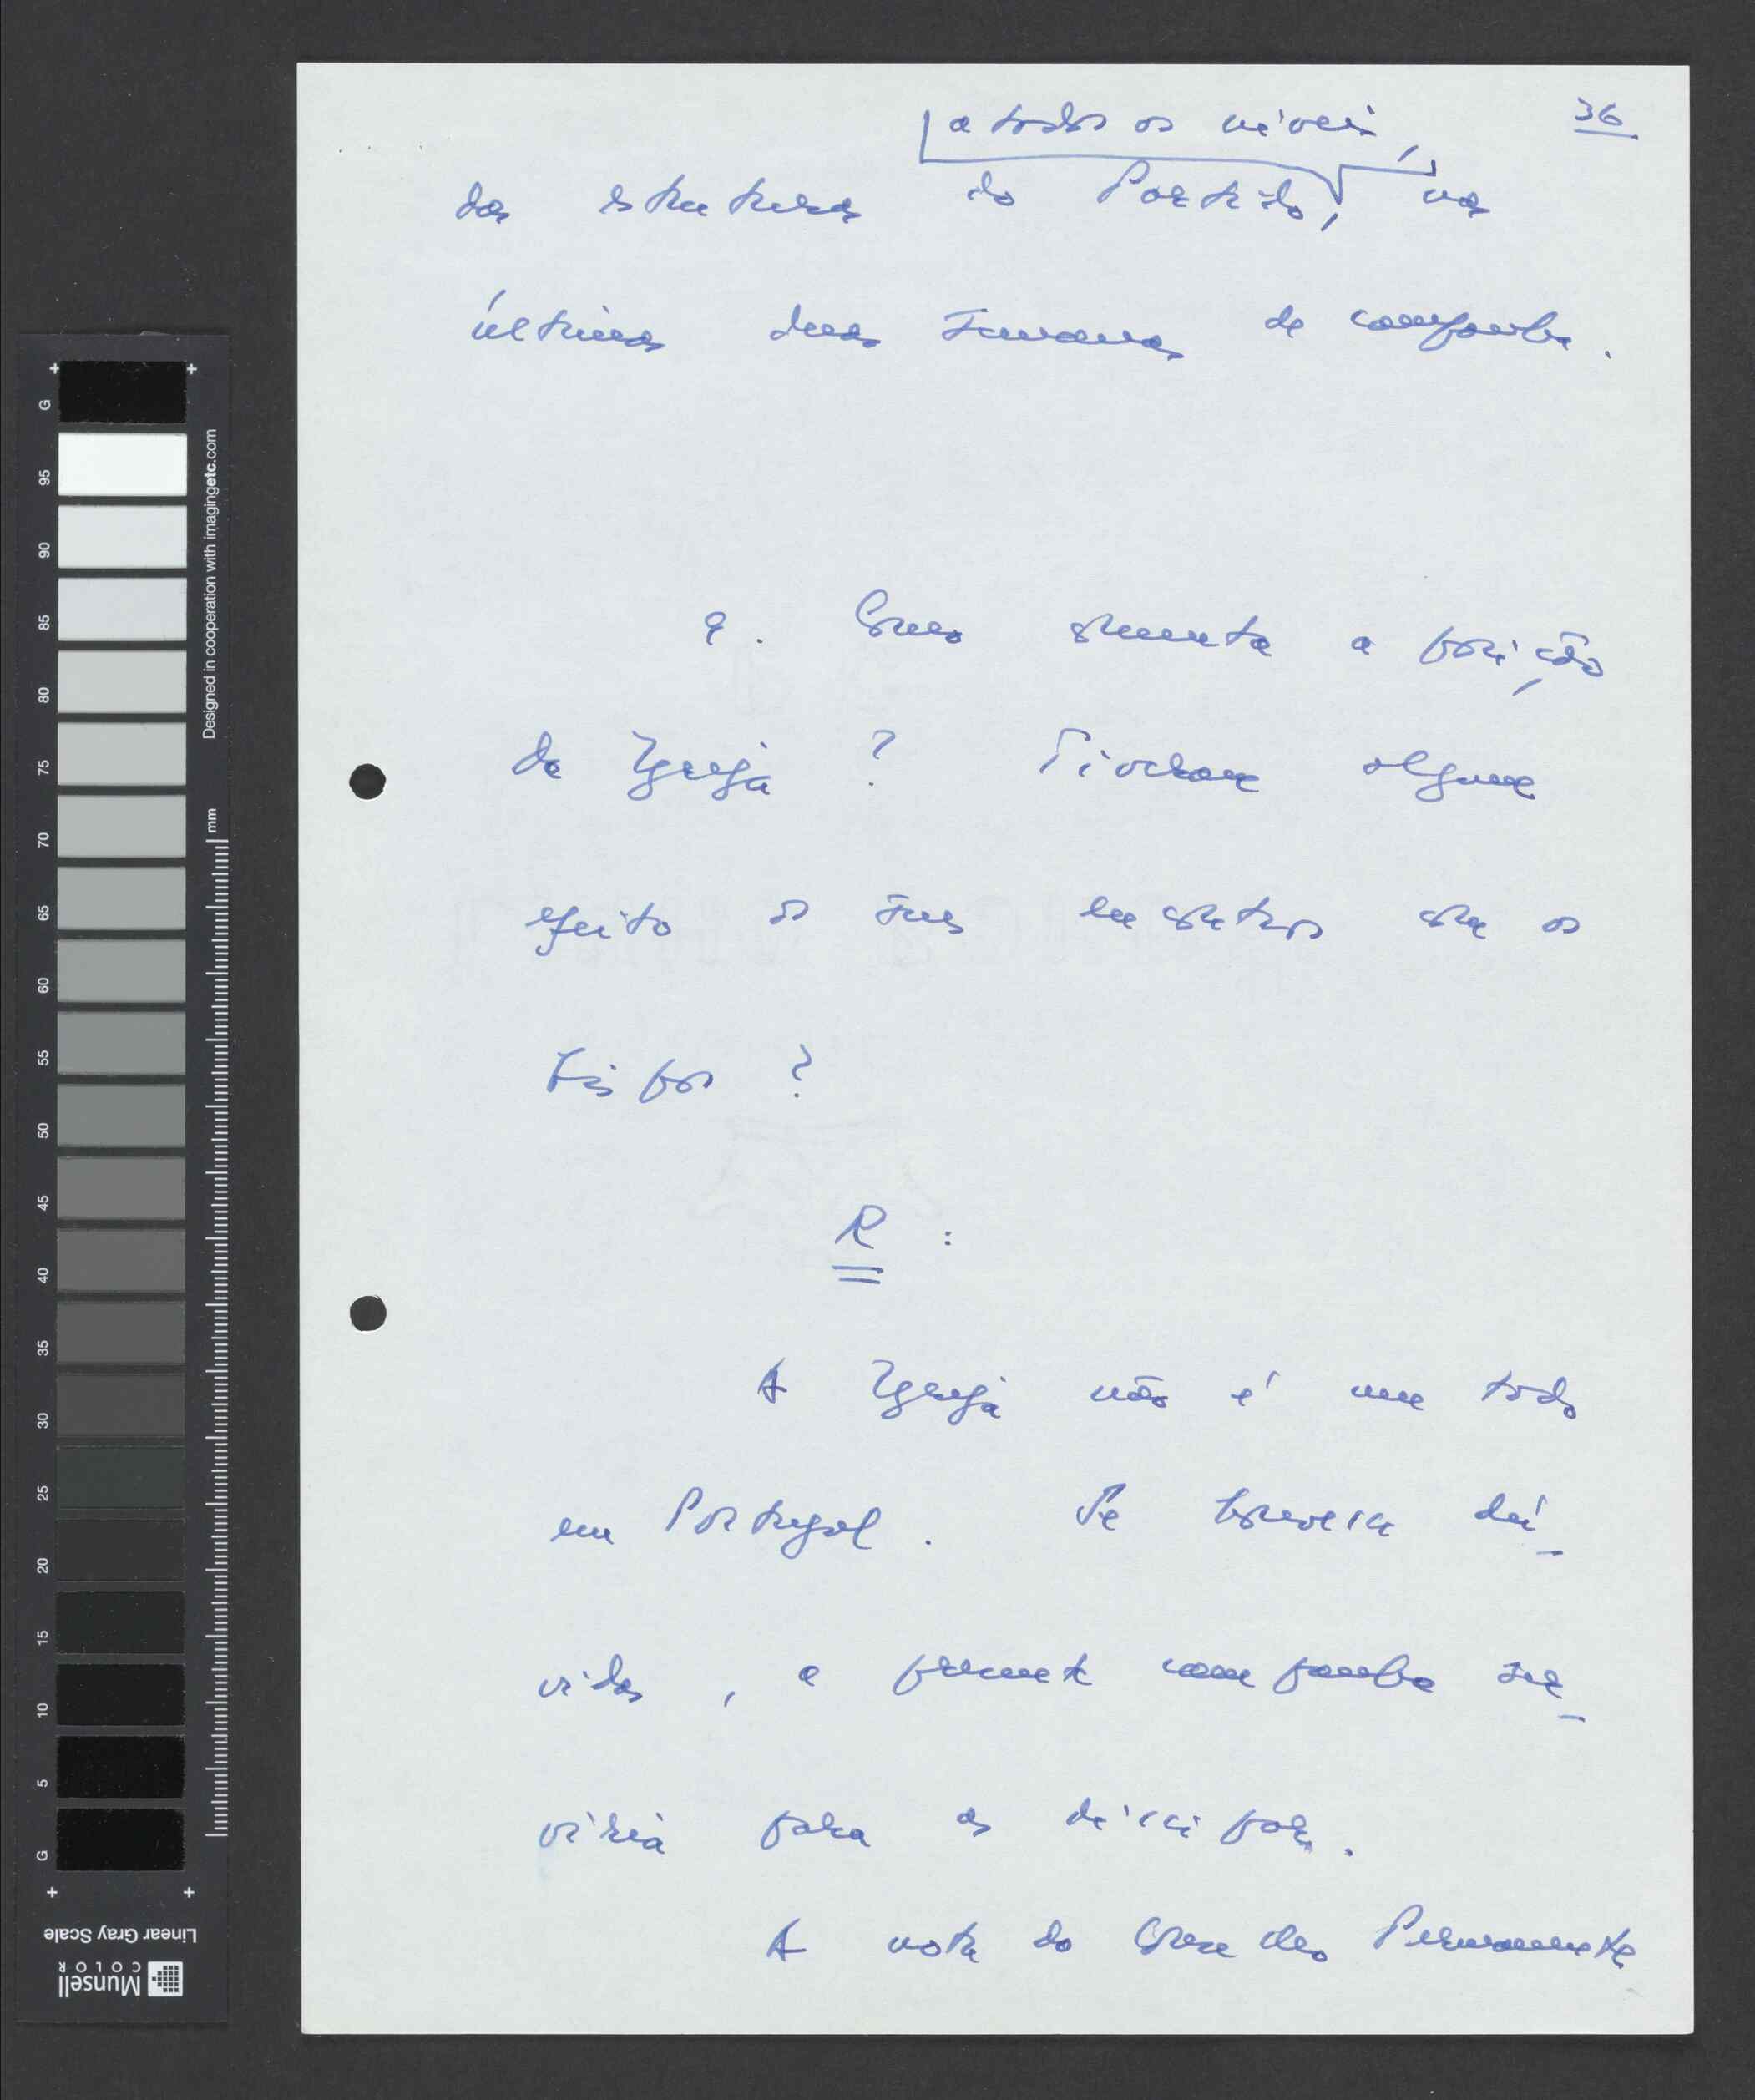 36
a todos os níveis,
das estruturas do Partido, nas
últimas duas semanas de campanha.
9. Como comenta a posição
da Igreja ? Tiveram algum
efeito os seus encontros com os
Bispos ?
R :
A Igreja não é um todo
em Portugal. Se houvesse dú-
vidas, a presente campanha ser-
viria para as dissipar.
A nota do Conselho Permanente
G
95
90
85
80
75
70
65
60
55
50
45
40
35
30
25
20
15
10
5
G
Designed in cooperation with imagingetc.com
mm
Linear Gray Scale
Munsell
COLOR